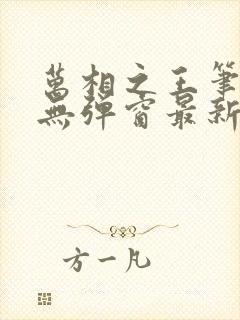 萬相之王筆
無彈窗最新
方一凡